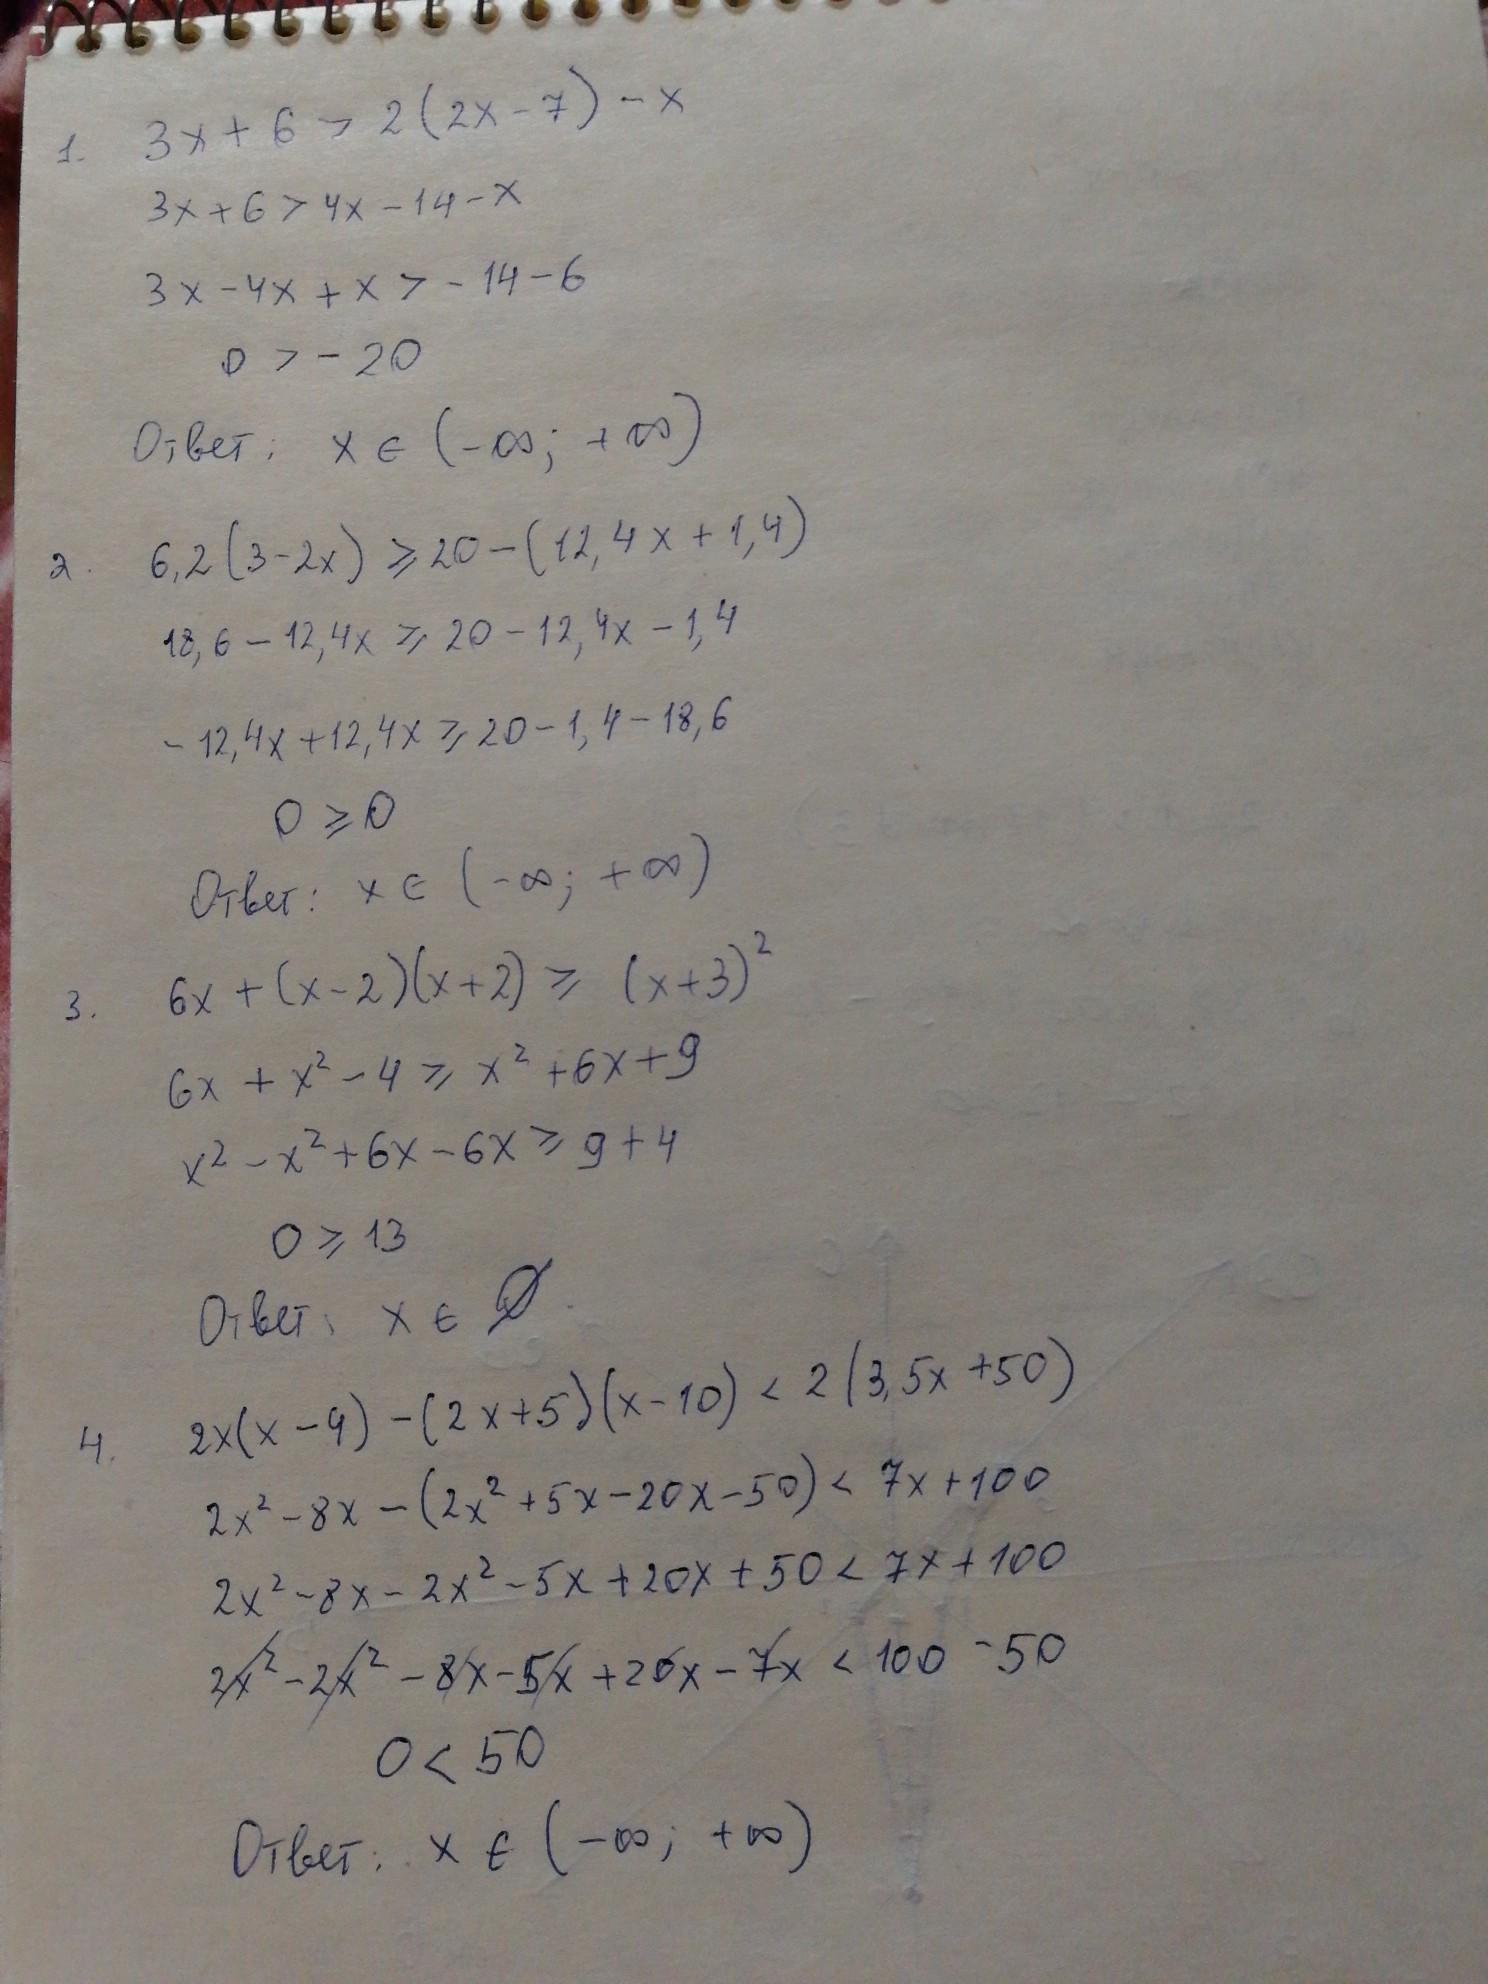 1. 3x + 6 > 2(2x - 7) - x
3x + 6 > 4x - 14 - x
3x - 4x + x > - 14 - 6
0 > - 20
Ответ: x ∈ (-∞; +∞)
2. 6,2(3 - 2x) ⩾ 20 - (12,4x + 1,4)
18,6 - 12,4x ⩾ 20 - 12,4x - 1,4
- 12,4x + 12,4x ⩾ 20 - 1,4 - 18,6
0 ⩾ 0
Ответ: x ∈ (-∞; +∞)
3. 6x + (x - 2)(x + 2) ⩾ (x + 3)²
6x + x² - 4 ⩾ x² + 6x + 9
x² - x² + 6x - 6x ⩾ 9 + 4
0 ⩾ 13
Ответ: x ∈ ∅.
4. 2x(x - 4) - (2x + 5)(x - 10) < 2(3,5x + 50)
2x² - 8x - (2x² + 5x - 20x - 50) < 7x + 100
2x² - 8x - 2x² - 5x + 20x + 50 < 7x + 100
2x² - 2x² - 8x - 5x + 20x - 7x < 100 - 50
0 < 50
Ответ: x ∈ (-∞; +∞)